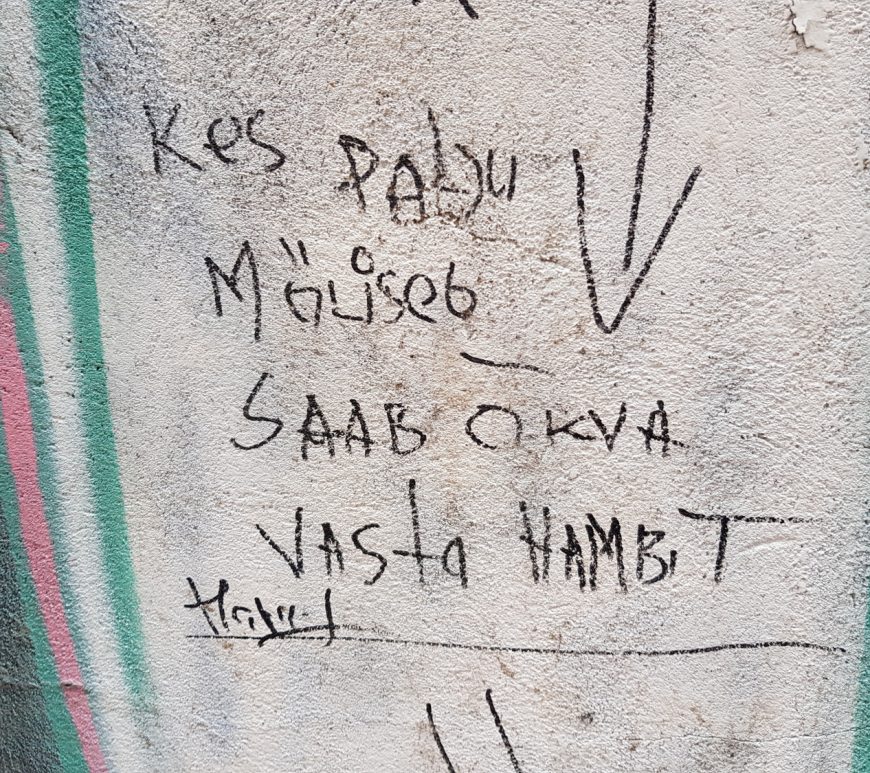 Kes PALJU
Möliseb
SAAB ÕKVA
VASta HAMBiT